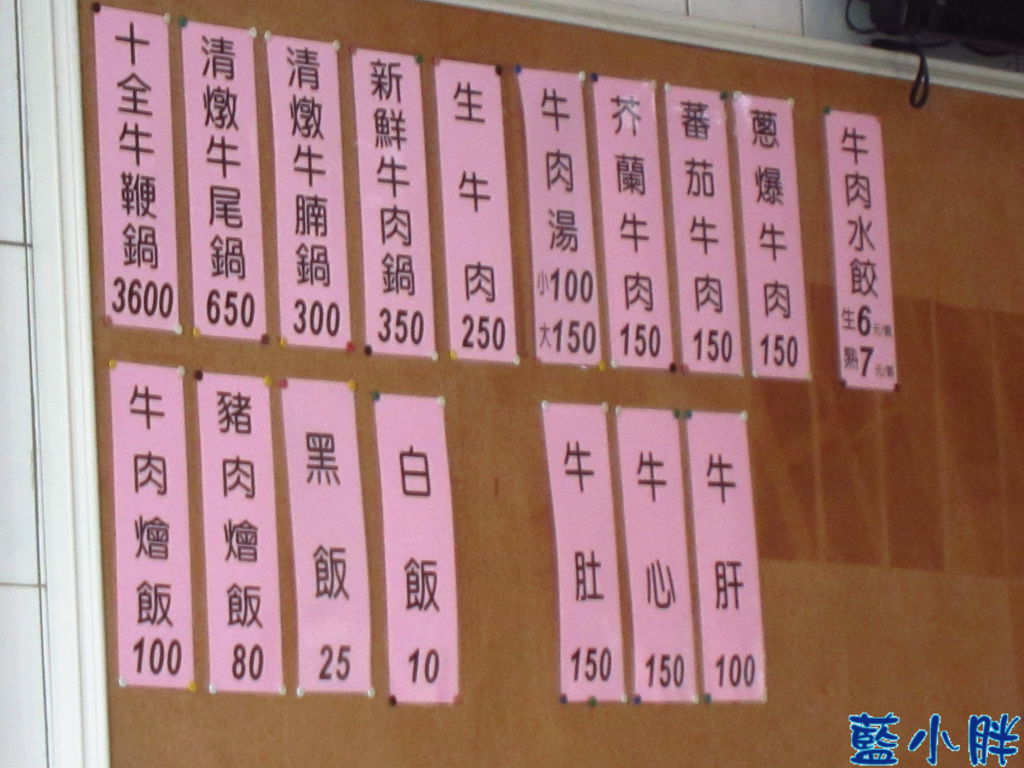 十全牛鞭鍋 3600
清燉牛尾鍋 650
清燉牛腩鍋 300
新鮮牛肉鍋 350
生牛肉 250
牛肉湯 小100 大150
芥蘭牛肉 150
蕃茄牛肉 150
蔥爆牛肉 150
牛肉水餃 生6元/顆 熟7元/顆
牛肉燴飯 100
豬肉燴飯 80
黑飯 25
白飯 10
牛肚 150
牛心 150
牛肝 100
藍小胖